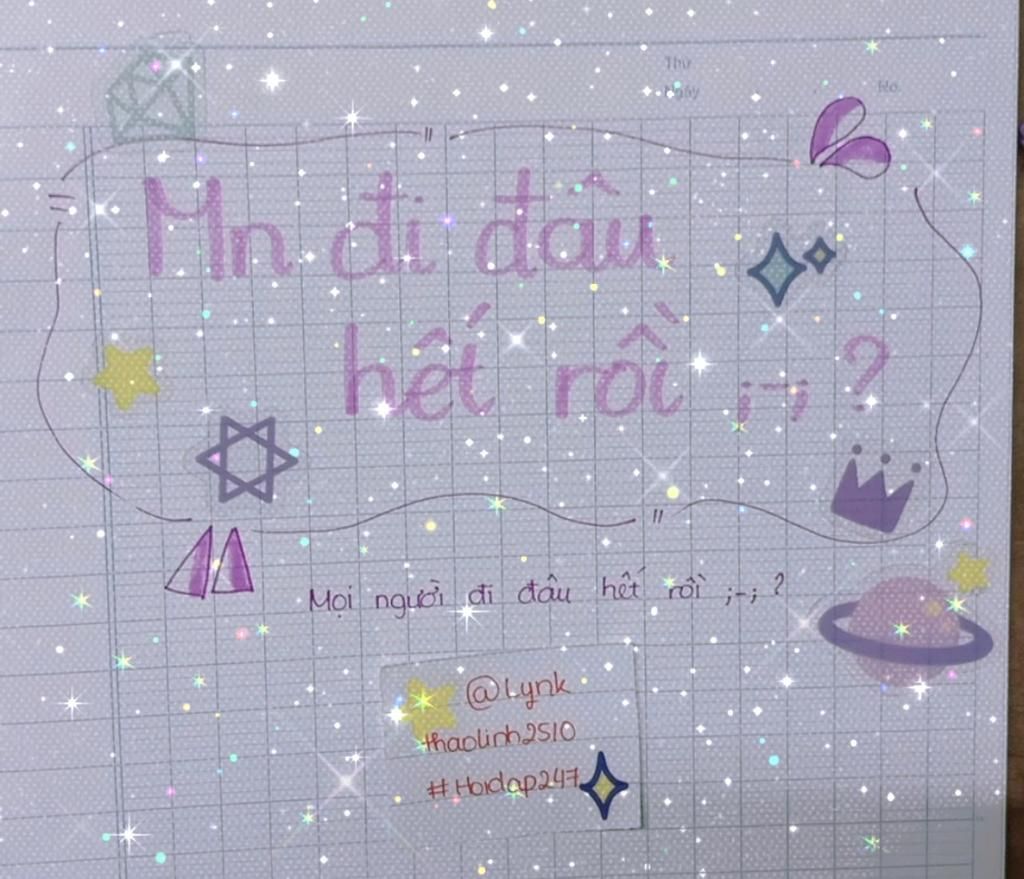 Thứ
Ngày
No.
Mn đi đâu
hết rồi ;-; ?
Mọi người đi đâu hết rồi ;-; ?
@Lynk
thaolinh2510
#Hoidap247